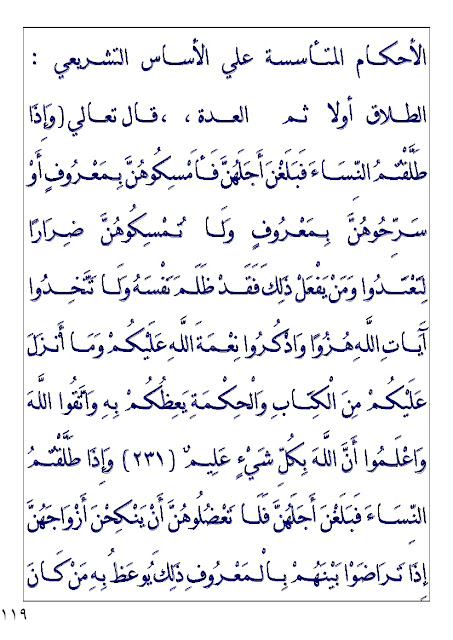 الأحكام المتأسسة علي الأساس التشريعي :
الطلاق أولا ثم العدة ، ،قال تعالي (وَإِذَا
طَلَّقْتُمُ النِّسَاءَ فَبَلَغْنَ أَجَلَهُنَّ فَأَمْسِكُوهُنَّ بِمَعْرُوفٍ أَوْ
سَرِّحُوهُنَّ بِمَعْرُوفٍ وَلَا تُمْسِكُوهُنَّ ضِرَارًا
لِتَعْتَدُوا وَمَنْ يَفْعَلْ ذَلِكَ فَقَدْ ظَلَمَ نَفْسَهُ وَلَا تَتَّخِذُوا
آَيَاتِ اللَّهِ هُزُوًا وَاذْكُرُوا نِعْمَةَ اللَّهِ عَلَيْكُمْ وَمَا أَنْزَلَ
عَلَيْكُمْ مِنَ الْكِتَابِ وَالْحِكْمَةِ يَعِظُكُمْ بِهِ وَاتَّقُوا اللَّهَ
وَاعْلَمُوا أَنَّ اللَّهَ بِكُلِّ شَيْءٍ عَلِيمٌ (٢٣١) وَإِذَا طَلَّقْتُمُ
النِّسَاءَ فَبَلَغْنَ أَجَلَهُنَّ فَلَا تَعْضُلُوهُنَّ أَنْ يَنْكِحْنَ أَزْوَاجَهُنَّ
إِذَا تَرَاضَوْا بَيْنَهُمْ بِالْمَعْرُوفِ ذَلِكَ يُوعَظُ بِهِ مَنْ كَانَ
١١٩